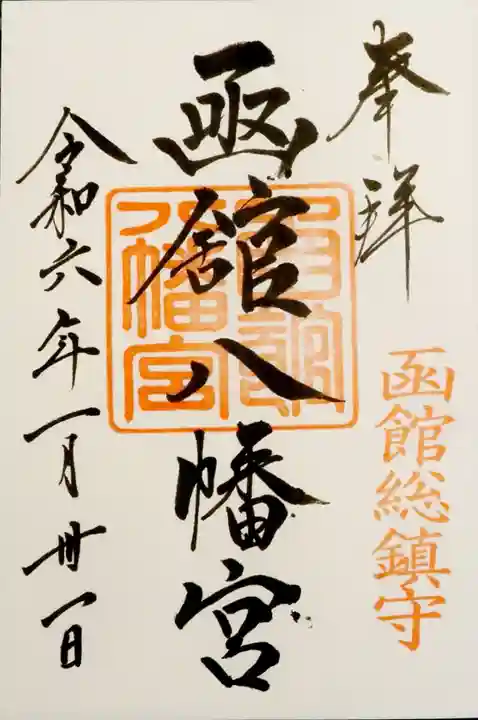 奉拝
函館総鎮守
函館八幡宮
函館八幡宮
令和六年一月卅一日